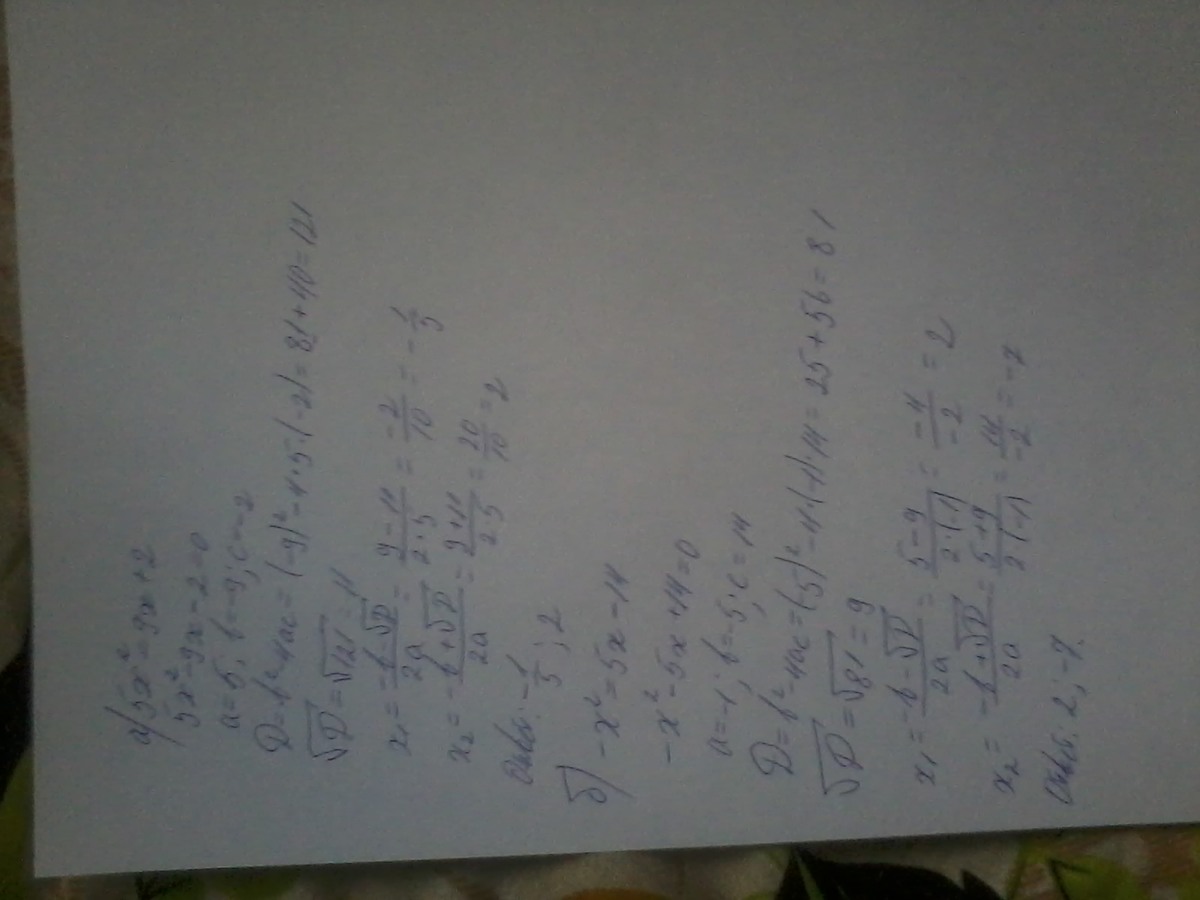 а) 5x² = 9x + 2
5x² - 9x - 2 = 0
a = 5, b = -9; c = -2
D = b² - 4ac = (-9)² - 4·5·(-2) = 81 + 40 = 121
√D = √121 = 11
x₁ = (-b - √D)/2a = (9 - 11)/(2·5) = -2/10 = -1/5
x₂ = (-b + √D)/2a = (9 + 11)/(2·5) = 20/10 = 2
Ответ: -1/5 ; 2
б) -x² = 5x - 14
-x² - 5x + 14 = 0
a = -1; b = -5; c = 14
D = b² - 4ac = (-5)² - 4·(-1)·14 = 25 + 56 = 81
√D = √81 = 9
x₁ = (-b - √D)/2a = (5 - 9)/(2·(-1)) = -4/-2 = 2
x₂ = (-b + √D)/2a = (5 + 9)/(2(-1)) = 14/-2 = -7
Ответ: 2; -7.